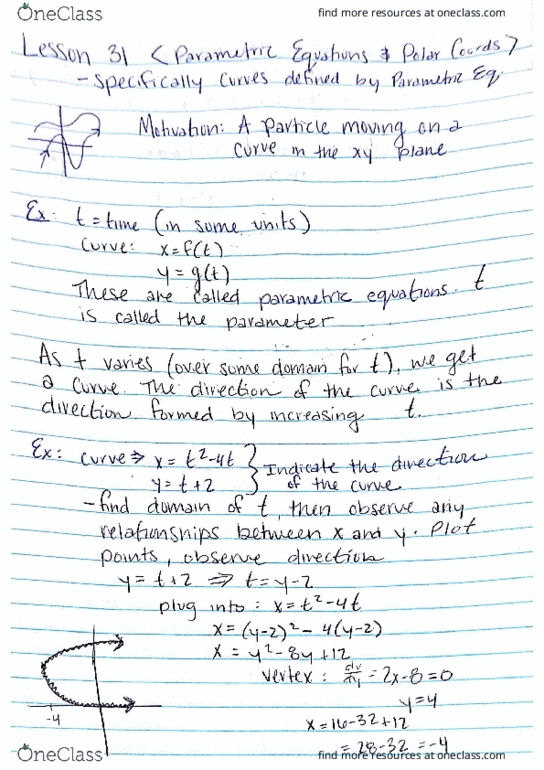 OneClass
find more resources at oneclass.com
Lesson 31 < Parametric Equations & Polar Coords >
- Specifically Curves defined by Parametric Eq.
Motivation: A particle moving on a
curve in the xy plane
Ex: t = time (in some units)
Curve: x = f(t)
y = g(t)
These are called parametric equations. t
is called the parameter
As t varies (over some domain for t), we get
a curve. The direction of the curve is the
direction formed by increasing t.
Ex: curve ⇒ x = t²-4t } Indicate the direction
y = t+2 } of the curve
- find domain of t, then observe any
relationsnips between x and y. Plot
points, observe direction
y = t+2 ⇒ t = y-2
plug into: x = t²-4t
x = (y-2)² - 4(y-2)
x = y² - 8y + 12
vertex: = 2x-8 = 0
y = 4
x = 16-32+12
-4
= 28-32 = -4
OneClass
find more resources at oneclass.com